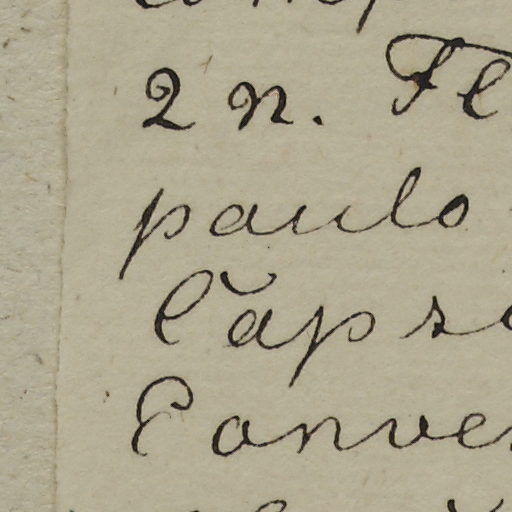 2 n. Fl
paulo
Căps
Conve